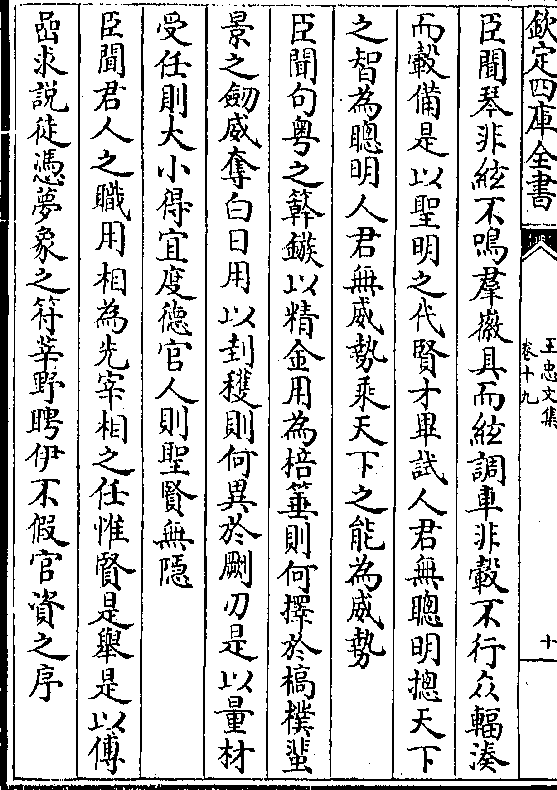 欽定四庫全書
王忠文集
卷十九
十
臣聞琴非絃不鳴羣徽具而絃調車非轂不行众輻湊
而轂備是以聖明之代賢才畢試人君無聰明揔天下
之智為聰明人君無威勢乘天下之能為威勢
臣聞句粤之簳鏃以精金用為棓箠則何擇於槁樸蜚
景之劒威奪白日用以刲穫則何異於劂刀是以量材
受任則大小得宜度德官人則聖賢無隱
臣聞君人之職用相為先宰相之任惟賢是舉是以傅
嵒求説徒憑夢象之符莘野聘伊不假官資之序